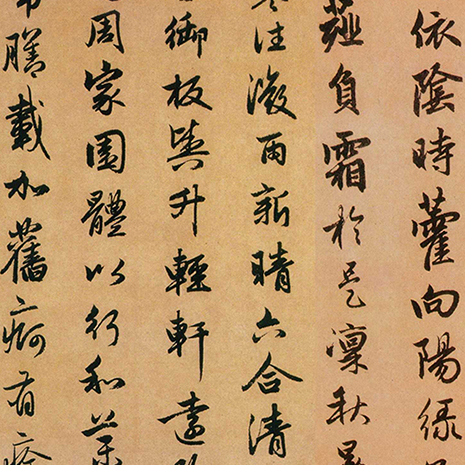 依陰時藿向陽綠
薤負霜於是凜秋
往溦雨新晴六合清
御板輿升輕軒遠
周家園體以行和藥
膳載加舊痾有痊